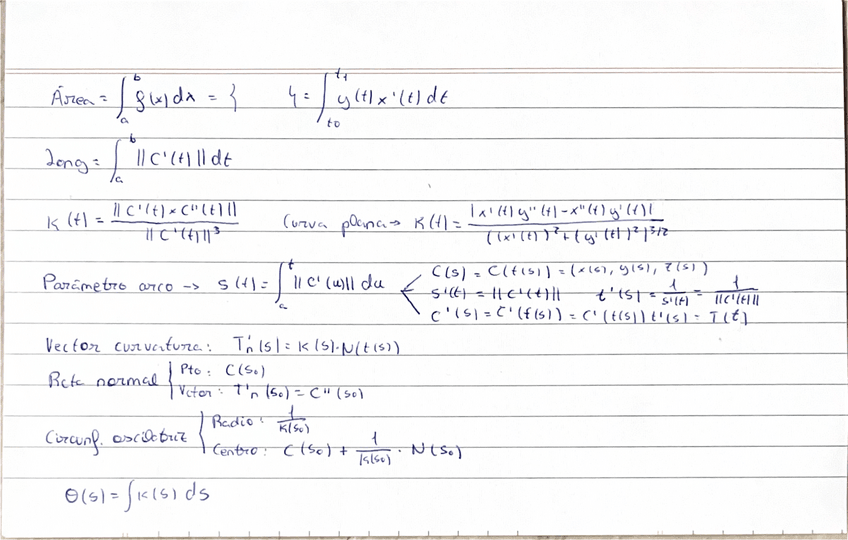 Área = ∫_a^b f(x) dx = { 4 = ∫_{t0}^{t1} y(t) x'(t) dt
Long = ∫_a^b ||C'(t)|| dt
K(t) = ||C'(t) × C''(t)|| / ||C'(t)||^3 Curva plana → K(t) = |x'(t) y''(t) - x''(t) y'(t)| / ((x'(t))^2 + (y'(t))^2)^{3/2}
C(s) = C(t(s)) = (x(s), y(s), z(s))
Parámetro arco → s(t) = ∫_a^t ||C'(u)|| du s'(t) = ||C'(t)|| t'(s) = 1/s'(t) = 1/||C'(t)||
C'(s) = C'(t(s)) = C'(t(s)) t'(s) = T(t)
Vector curvatura: T'n(s) = K(s)·N(t(s))
Recta normal { Pto: C(s0)
Vector: T'n(s0) = C''(s0)
Circunf. osculatriz { Radio: 1/K(s0)
Centro: C(s0) + 1/K(s0) · N(s0)
θ(s) = ∫ K(s) ds